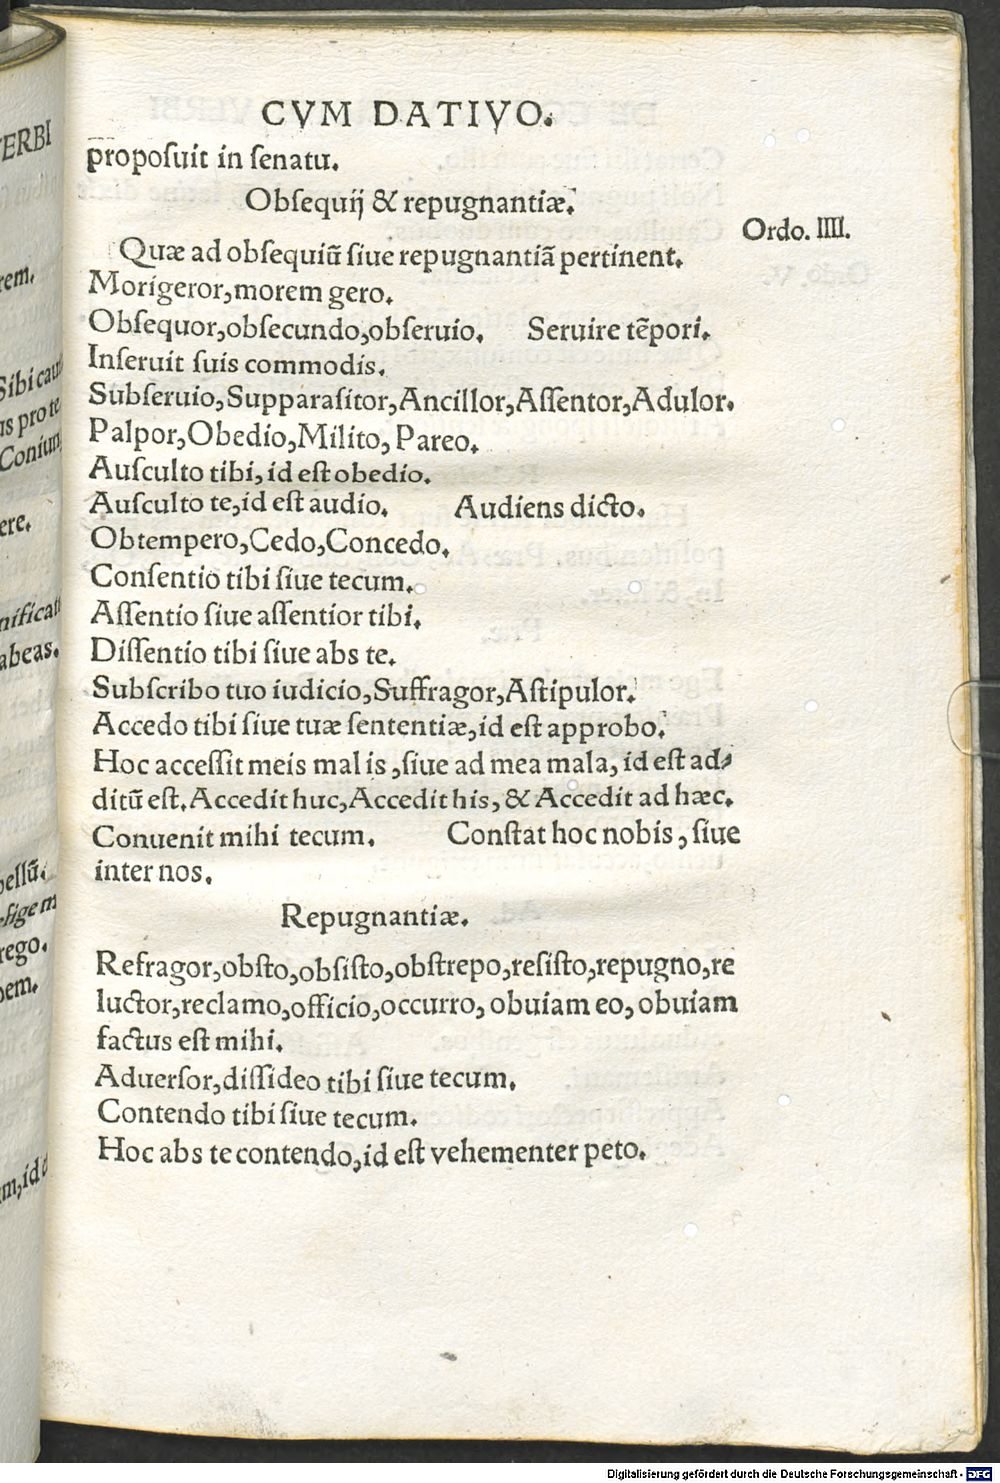 CVM DATIVO.
proposuit in ſenatu.
Obſequij & repugnantiæ.
Ordo. IIII.
Quæ ad obſequiũ ſiue repugnantiã pertinent.
Morigeror,morem gero.
Obſequor,obſecundo,obſeruio. Seruire tẽpori.
Inſeruit ſuis commodis.
Subſeruio,Supparaſitor,Ancillor,Aſſentor,Adulor.
Palpor,Obedio,Milito, Pareo.
Auſculto tibi, id eſt obedio.
Auſculto te,id eſt audio. Audiens dicto.
Obtempero,Cedo,Concedo.
Conſentio tibi ſiue tecum.
Aſſentio ſiue aſſentior tibi.
Diſſentio tibi ſiue abs te.
Subſcribo tuo iudicio,Suffragor,Aſtipulor.
Accedo tibi ſiue tuæ ſententiæ,id eſt approbo.
Hoc acceſſit meis malis ,ſiue ad mea mala, id eſt ad⸗
ditũ eſt. Accedit huc,Accedit his, & Accedit ad hæc.
Conuenit mihi tecum. Conſtat hoc nobis , ſiue
inter nos.
Repugnantiæ.
Refragor,obſto,obſiſto,obſtrepo,reſiſto,repugno,re
luctor,reclamo,officio,occurro, obuiam eo, obuiam
factus eſt mihi.
Aduerſor,diſſideo tibi ſiue tecum.
Contendo tibi ſiue tecum.
Hoc abs te contendo,id eſt vehementer peto.
VERBI
rem.
Sibi
us pro te
Coniun
ere.
abeas.
pellũ.
rego.
Digitalisierung gefördert durch die Deutsche Forschungsgemeinschaft - DFG